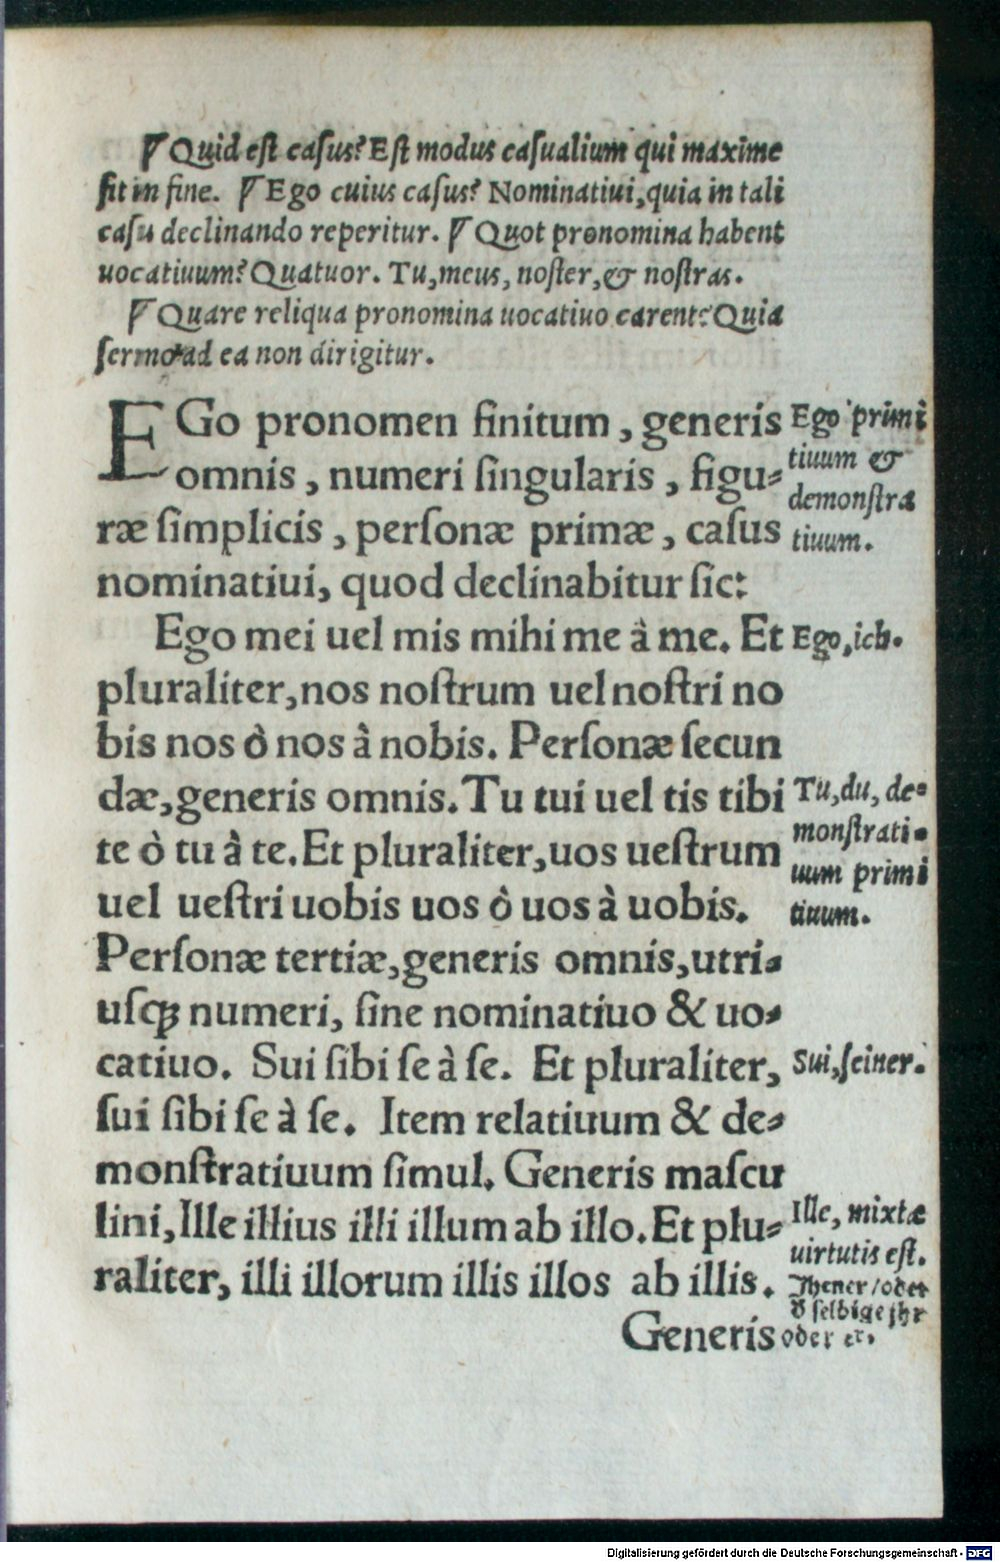 ¶ Quid est casus? Est modus casualium qui maxime
fit in fine. ¶ Ego cuius casus? Nominatiui, quia in tali
casu declinando reperitur. ¶ Quot pronomina habent
uocatiuum? Quatuor. Tu, meus, noster, & nostras.
¶ Quare reliqua pronomina uocatiuo carent? Quia
sermo ad ea non dirigitur.
EGo pronomen finitum, generis
omnis, numeri singularis, figu-
ræ simplicis, personæ primæ, casus
nominatiui, quod declinabitur sic:
Ego primi
tiuum &
demonstra
tiuum.
Ego mei uel mis mihi me à me. Et
Ego, ich.
pluraliter, nos nostrum uel nostri no
bis nos ò nos à nobis. Personæ secun
dæ, generis omnis. Tu tui uel tis tibi
te ò tu à te. Et pluraliter, uos uestrum
uel uestri uobis uos ò uos à uobis.
Tu, du, de-
monstrati-
uum primi
tiuum.
Personæ tertiæ, generis omnis, utri-
usqꝫ numeri, sine nominatiuo & uo-
catiuo. Sui sibi se à se. Et pluraliter,
Sui, seiner.
sui sibi se à se. Item relatiuum & de-
monstratiuum simul. Generis mascu
lini, Ille illius illi illum ab illo. Et plu-
raliter, illi illorum illis illos ab illis.
Ille, mixtæ
uirtutis est.
Jhener / oder
d selbige jhr
oder er.
Generis
Digitalisierung gefördert durch die Deutsche Forschungsgemeinschaft - DFG